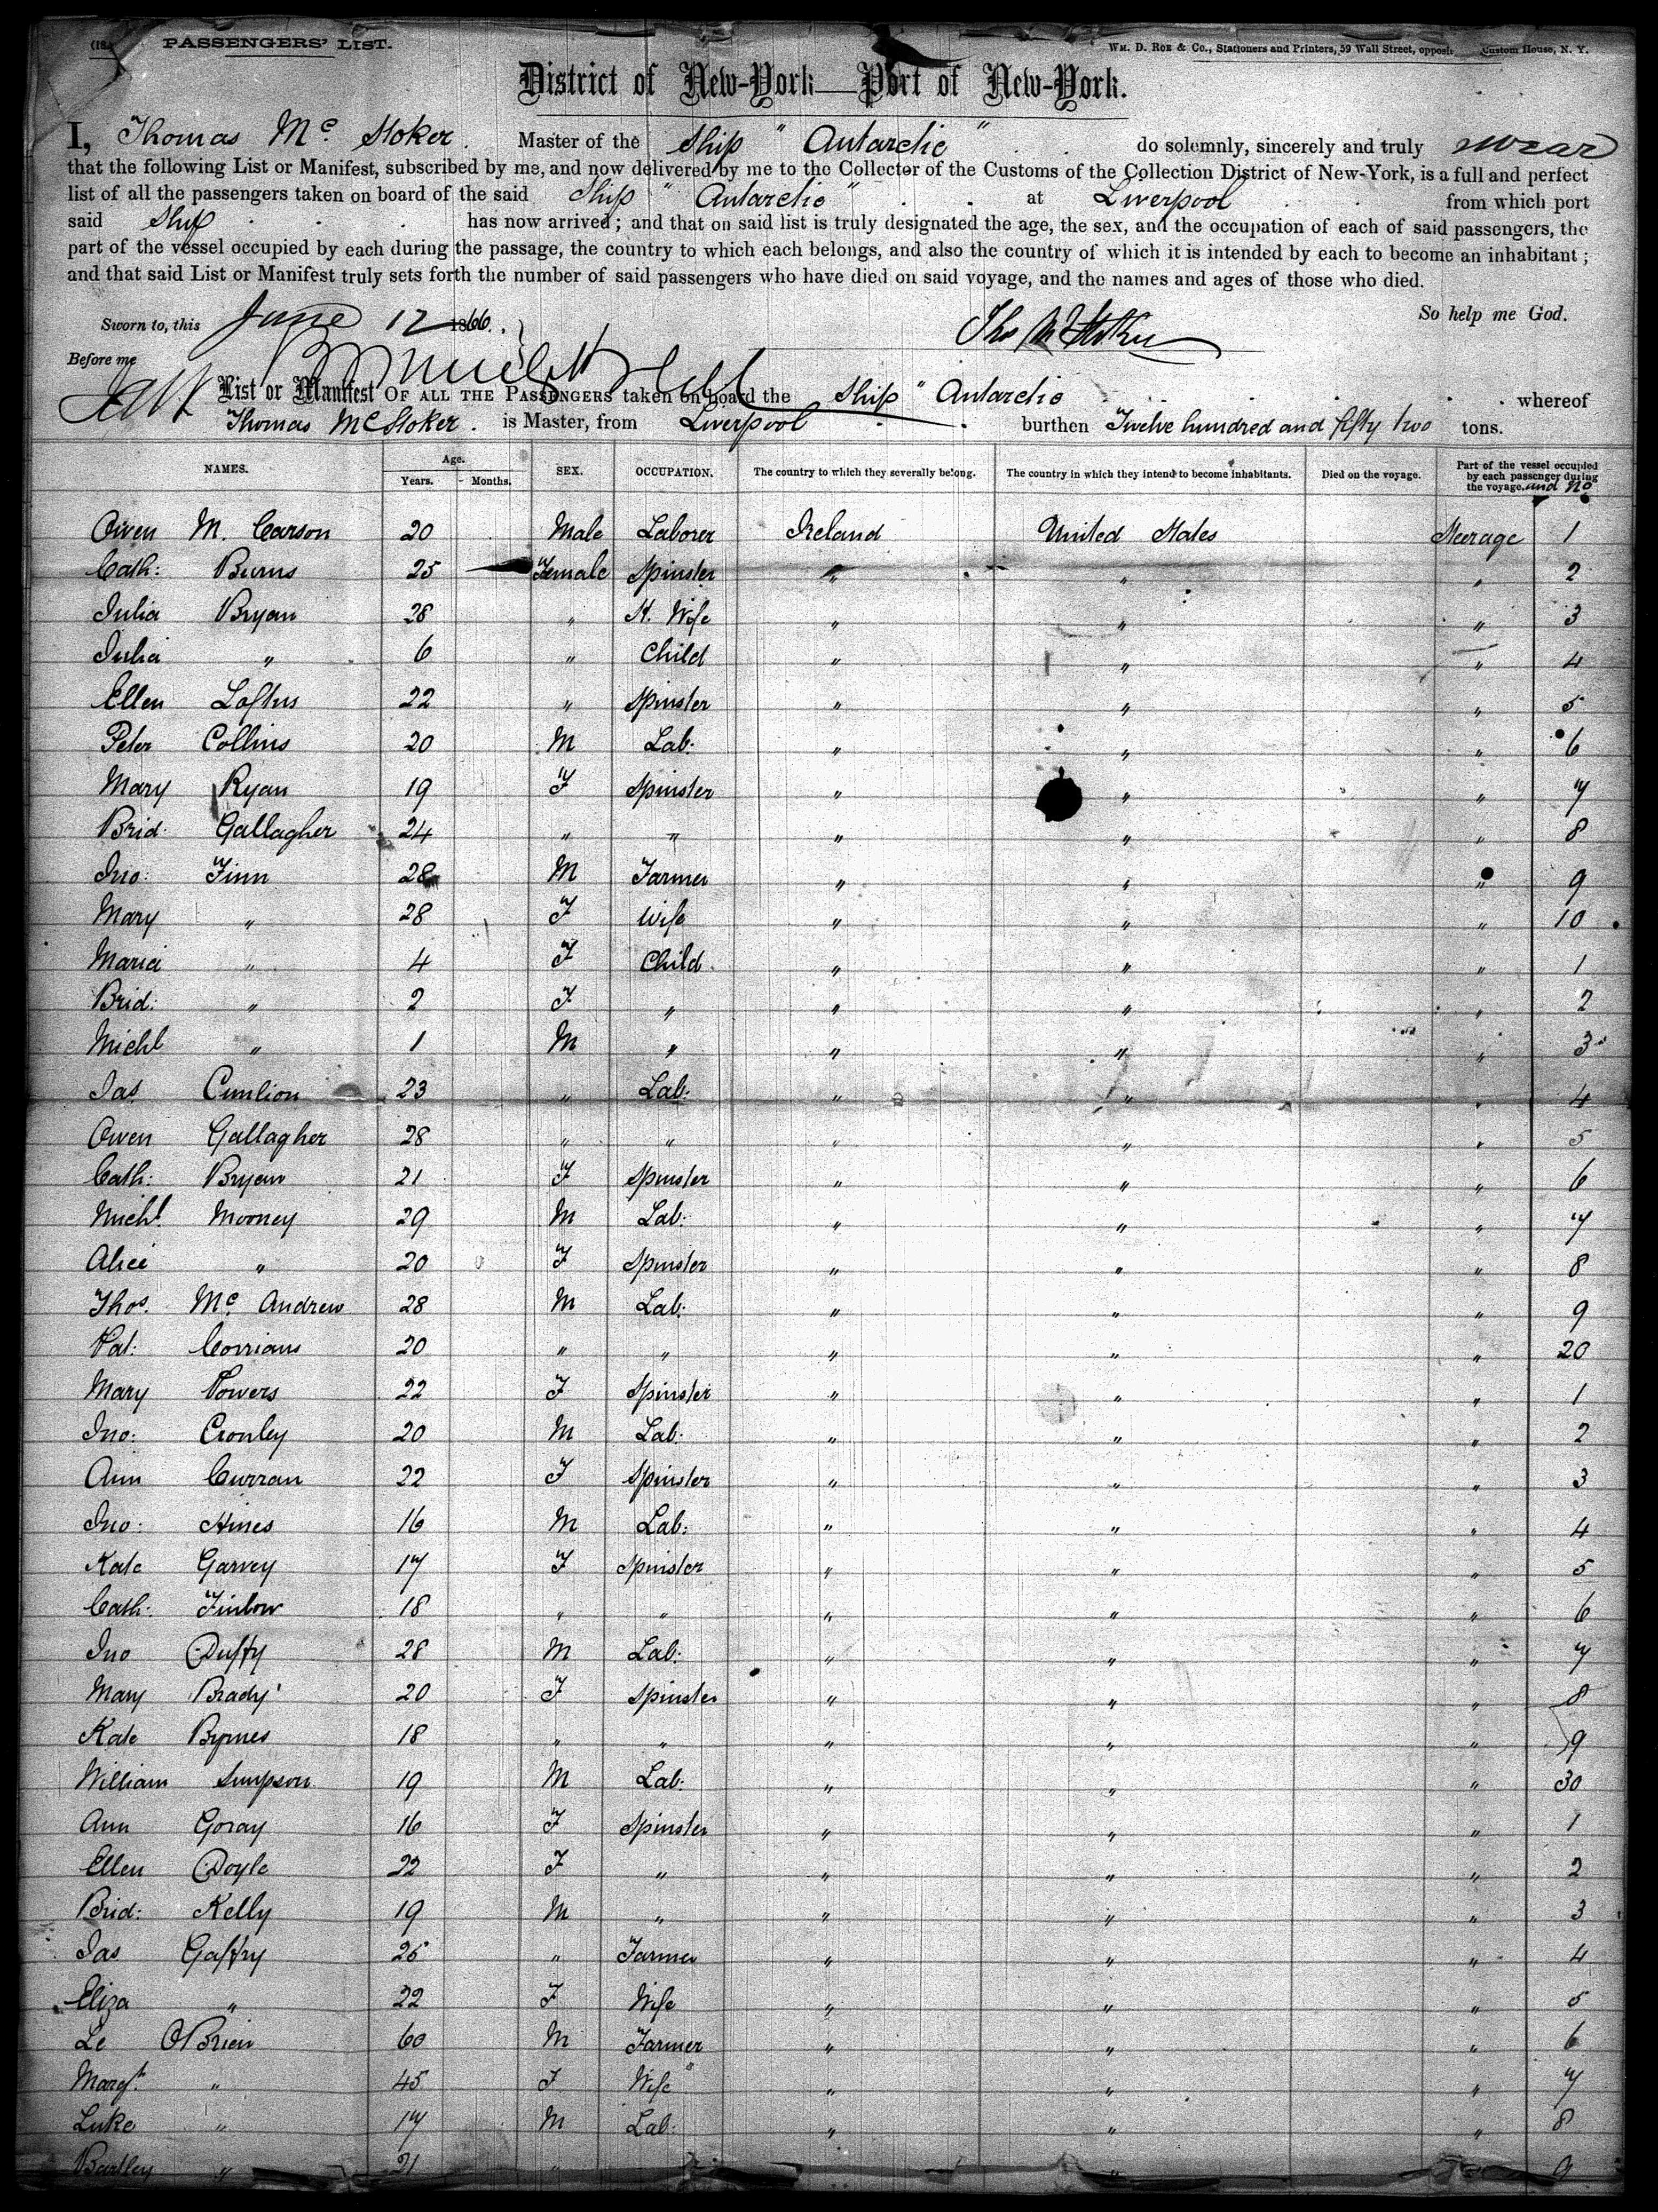 PASSENGERS' LIST.
Wm. D. Roe & Co., Stationers and Printers, 59 Wall Street, Custom House, N. Y.
District of New-York—Port of New-York.
I, Thomas Mc Stoker. Master of the Ship "Antarctic" do solemnly, sincerely and truly swear
that the following List or Manifest, subscribed by me, and now delivered by me to the Collector of the Customs of the Collection District of New-York, is a full and perfect
list of all the passengers taken on board of the said Ship "Antarctic" at Liverpool from which port
said Ship has now arrived; and that on said list is truly designated the age, the sex, and the occupation of each of said passengers, the
part of the vessel occupied by each during the passage, the country to which each belongs, and also the country of which it is intended by each to become an inhabitant;
and that said List or Manifest truly sets forth the number of said passengers who have died on said voyage, and the names and ages of those who died.
So help me God.
Sworn to, this June 12 1866.
Before me
List or Manifest OF ALL THE PASSENGERS taken on board the Ship "Antarctic whereof
Thomas McStoker. is Master, from Liverpool burthen Twelve hundred and fifty two tons.
NAMES. Age. Years. Months. SEX. OCCUPATION. The country to which they severally belong. The country in which they intend to become inhabitants. Died on the voyage. Part of the vessel occupied by each passenger during the voyage. and No
Owen M. Carson 20 Male Laborer Ireland United States Steerage 1
Cath: Burns 25 Female Spinster " " " 2
Julia Bryan 28 " H. Wife " " " 3
Julia " 6 " Child " " " 4
Ellen Loftus 22 " Spinster " " " 5
Peter Collins 20 M Lab: " " " 6
Mary Ryan 19 F Spinster " " " 7
Brid. Gallagher 24 " " " " " 8
Jno: Finn 28 M Farmer " " " 9
Mary " 28 F Wife " " " 10
Maria " 4 F Child " " " 1
Brid: " 2 F " " " " 2
Michl " 1 M " " " " 3
Jas Cunlion 23 " Lab: " " " 4
Owen Gallagher 28 " " " " " 5
Cath: Bryan 21 F Spinster " " " 6
Michl Mooney 29 M Lab: " " " 7
Alice " 20 F Spinster " " " 8
Thos. Mc Andrew 28 M Lab: " " " 9
Pat: Corrians 20 " " " " " 20
Mary Powers 22 F Spinster " " " 1
Jno: Cronley 20 M Lab: " " " 2
Ann Curran 22 F Spinster " " " 3
Jno: Hines 16 M Lab: " " " 4
Kate Garvey 17 F Spinster " " " 5
Cath: Finlow 18 " " " " " 6
Jno Duffy 28 M Lab: " " " 7
Mary Brady 20 F Spinster " " " 8
Kate Byrnes 18 " " " " " 9
William Simpson 19 M Lab: " " " 30
Ann Goray 16 F Spinster " " " 1
Ellen Doyle 22 F " " " " 2
Brid: Kelly 19 M " " " " 3
Jas Gaffry 26 " Farmer " " " 4
Eliza " 22 F Wife " " " 5
Le OBrien 60 M Farmer " " " 6
Margt. " 45 F Wife " " " 7
Luke " 17 M Lab: " " " 8
Bartley " 21 " 9